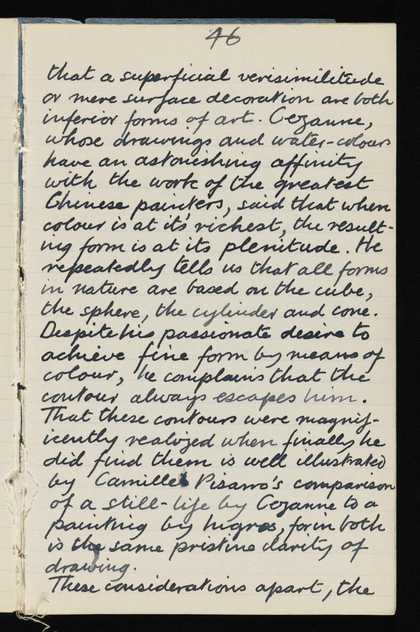 46
that a superficial verisimilitude
or mere surface decoration are both
inferior forms of art. Cezanne,
whose drawings and water-colours
have an astonishing affinity
with the work of the greatest
Chinese painters, said that when
colour is at it's richest, the result-
ing form is at its plenitude. He
repeatedly tells us that all forms
in nature are based on the cube,
the sphere, the cylinder and cone.
Despite his passionate desire to
achieve fine form by means of
colour, he complains that the
contour always escapes him.
That these contours were magnif-
icently realized when finally he
did find them is well illustrated
by Camille Pisarro's comparison
of a still-life by Cezanne to a
painting by Ingres, for in both
is the same pristine clarity of
drawing.
These considerations apart, the